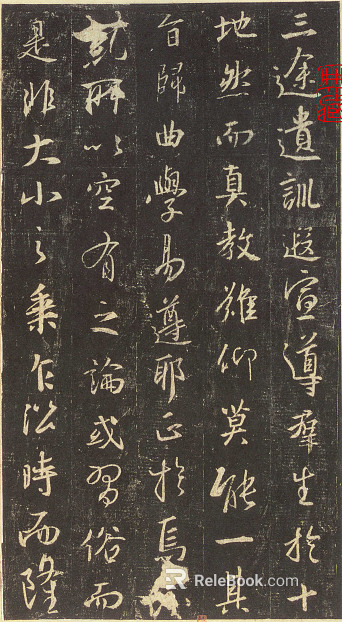 三途遺訓遐宣導羣生於十
地然而真教難仰莫能一其
旨歸曲學易遵耶正於焉
糺所以空有之論或習俗而
是非大小之乘乍沿時而隆
ReleBook.com